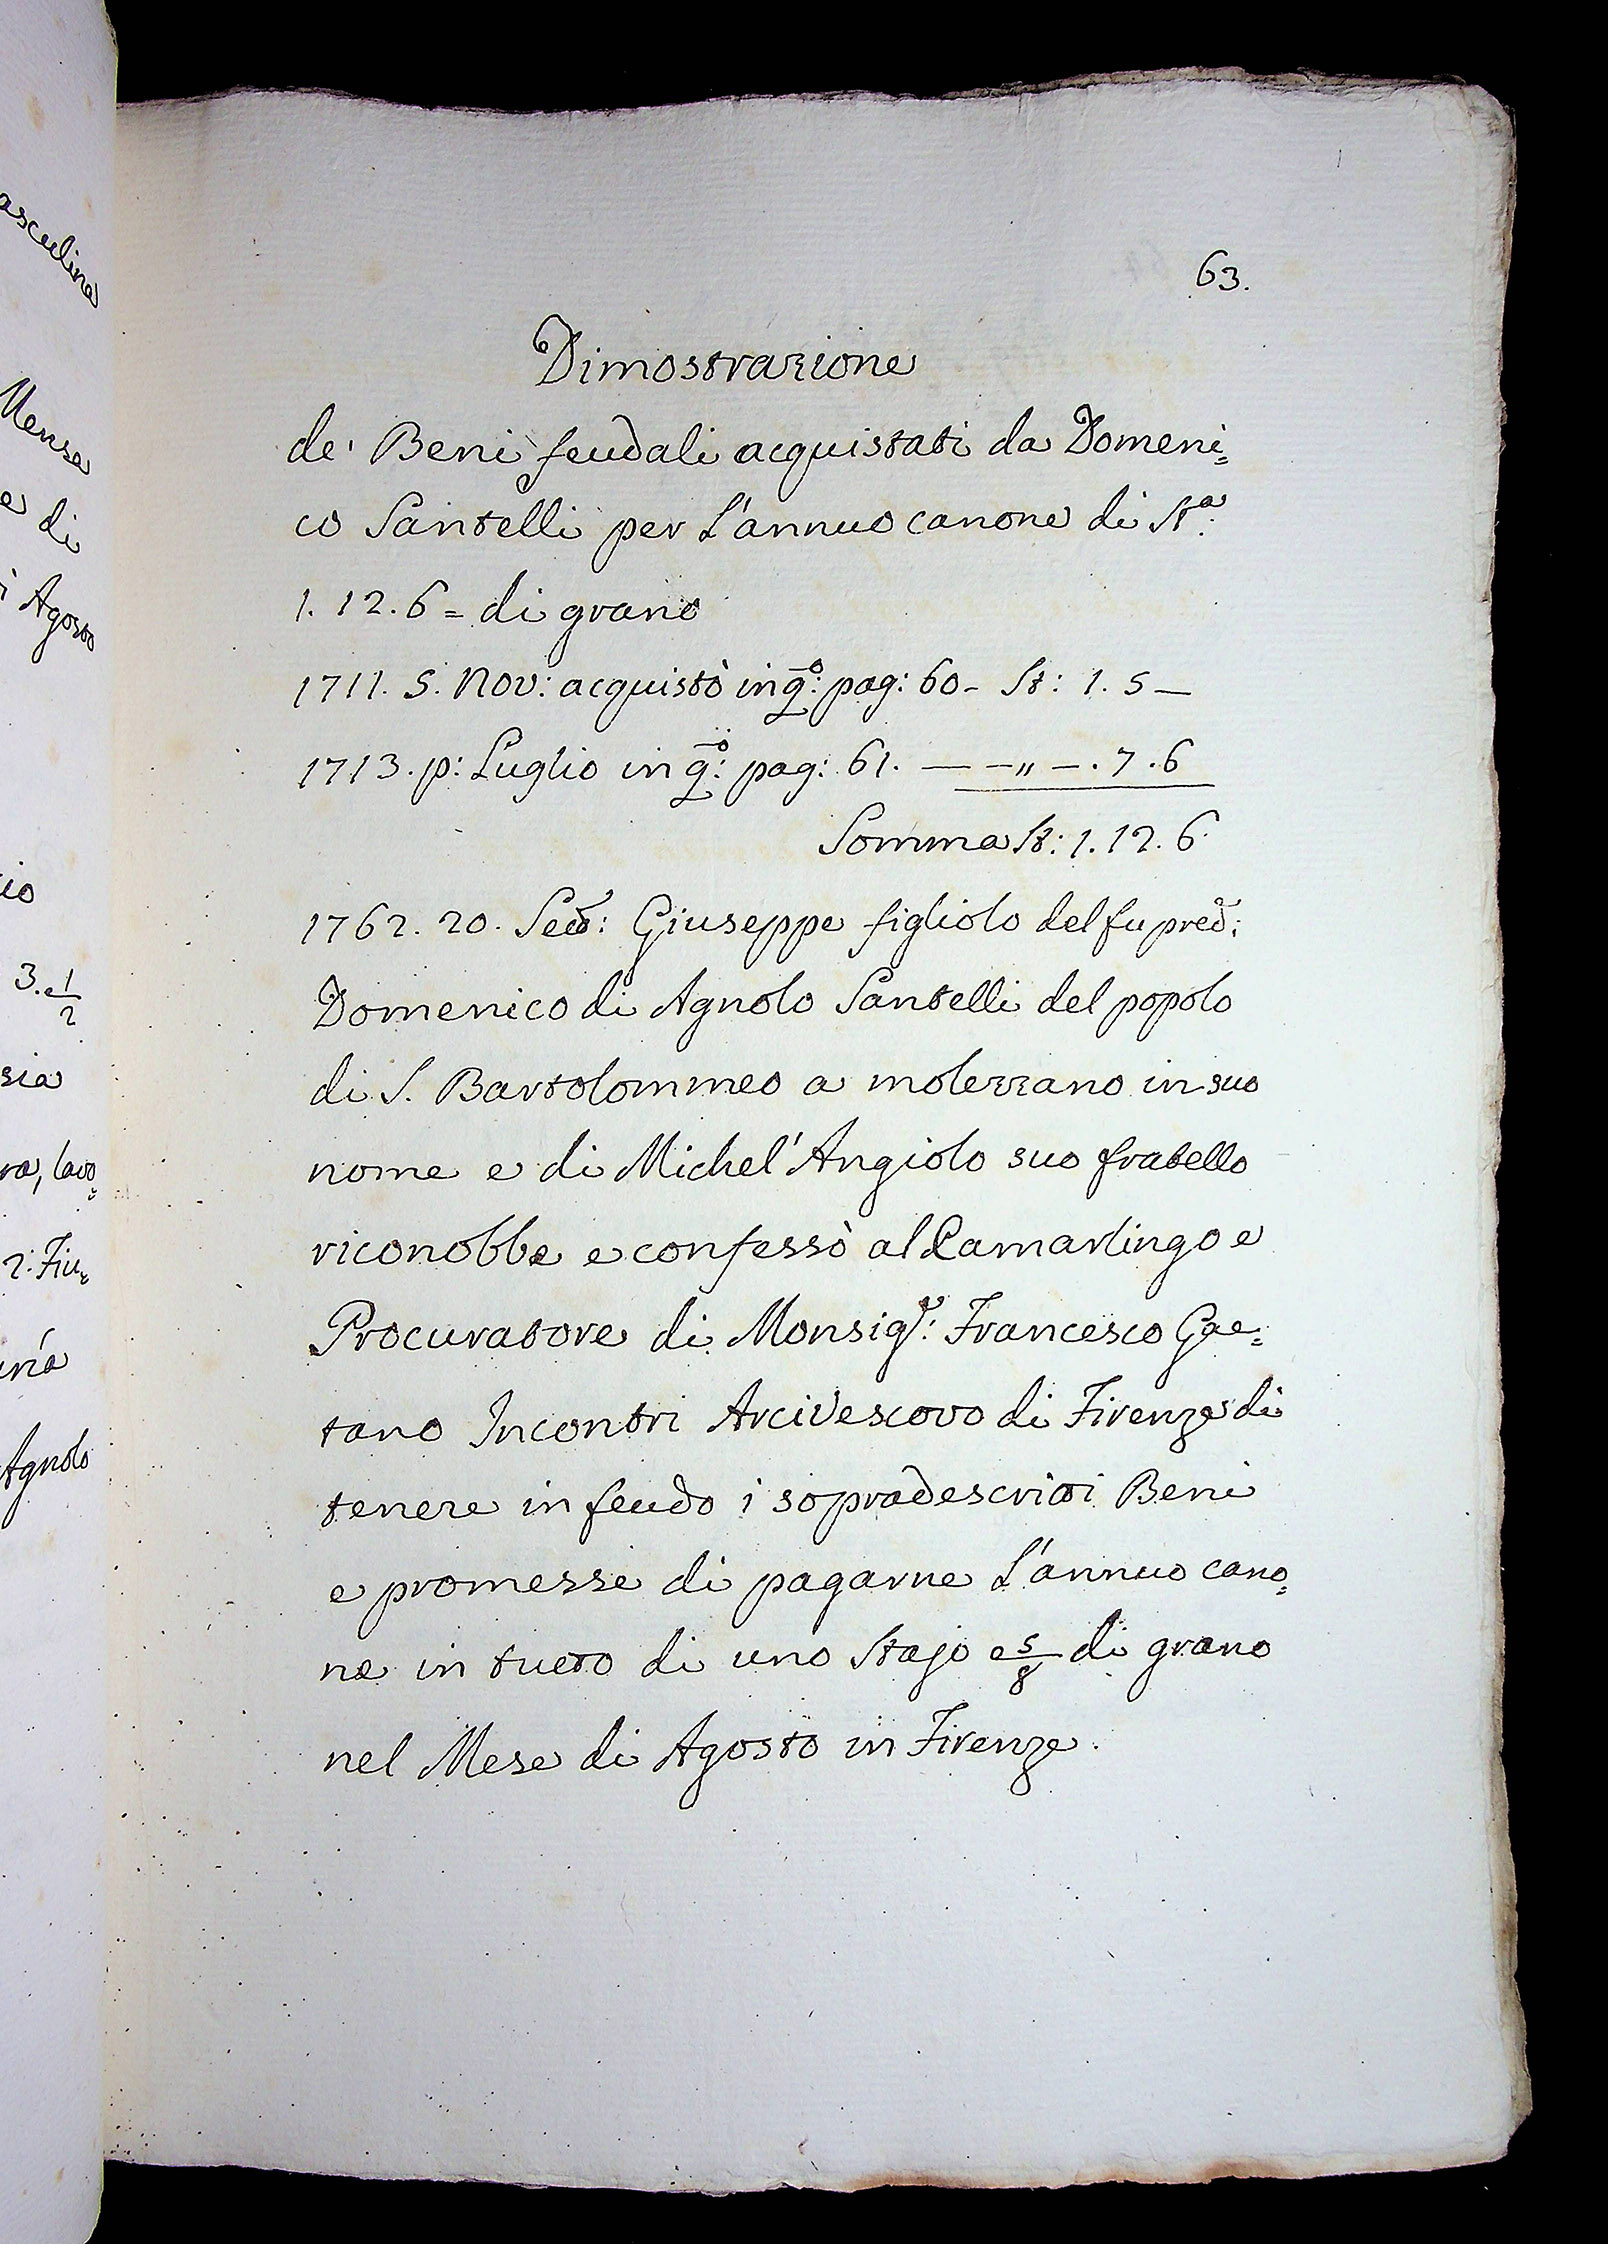 asculina
Mensa
e di
i Agosto
io
3. e 1/2
sia
ra, lavo=
2: Fiu=
Agnolo
63.
Dimostrazione
de' Beni feudali acquistati da Domeni=
co Santelli per L'annuo canone di Sta:
1. 12. 6 = di grano
1711. 5. Nov: acquistò in qo: pag: 60 - St: 1. 5 —
1713. p: Luglio in qo: pag: 61. — — " — . 7 . 6
Somma St: 1. 12. 6.
1762. 20. Sett: Giuseppe figliolo del fu pred:
Domenico di Agnolo Santelli del popolo
di S. Bartolommeo a molezzano in suo
nome e di Michel'Angiolo suo fratello
riconobbe e confessò al Camarlingo e
Procuratore di Monsigr: Francesco Gae=
tano Incontri Arcivescovo di Firenze di
tenere in feudo i sopradescritti Beni
e promesse di pagarne L'annuo cano=
ne in tutto di uno Stajo e 5/8 di grano
nel Mese di Agosto in Firenze.